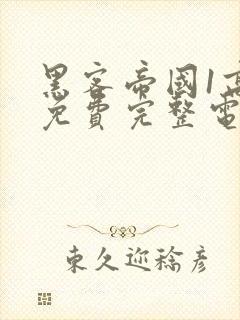 黑客帝國1高
免費完整電
東久迩稔彦